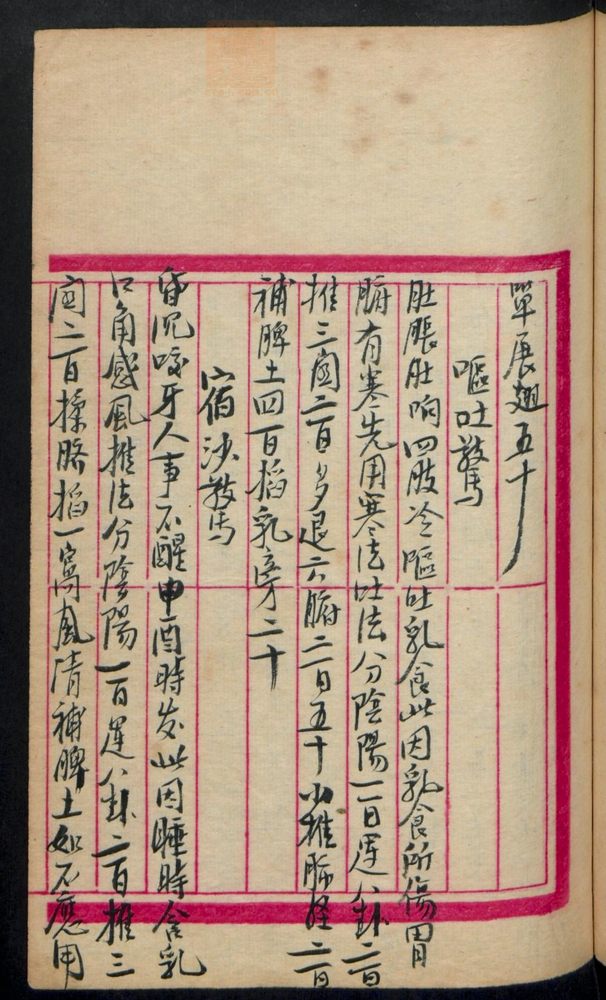 單展翅五十
嘔吐驚
肚脹肚响四肢冷嘔吐乳食此因乳食所傷胃
腑有寒先用寒法吐法分陰陽一百運八卦二百
推三関二百多退六腑二百五十小推脈経二百
補脾土四百掐乳旁二十
宿沙驚
昏沉咬牙人事不醒申酉時发此因睡時含乳
口角感風推法分陰陽一百運八卦二百推三
関二百揉臍掐一窩風清補脾土如不應用